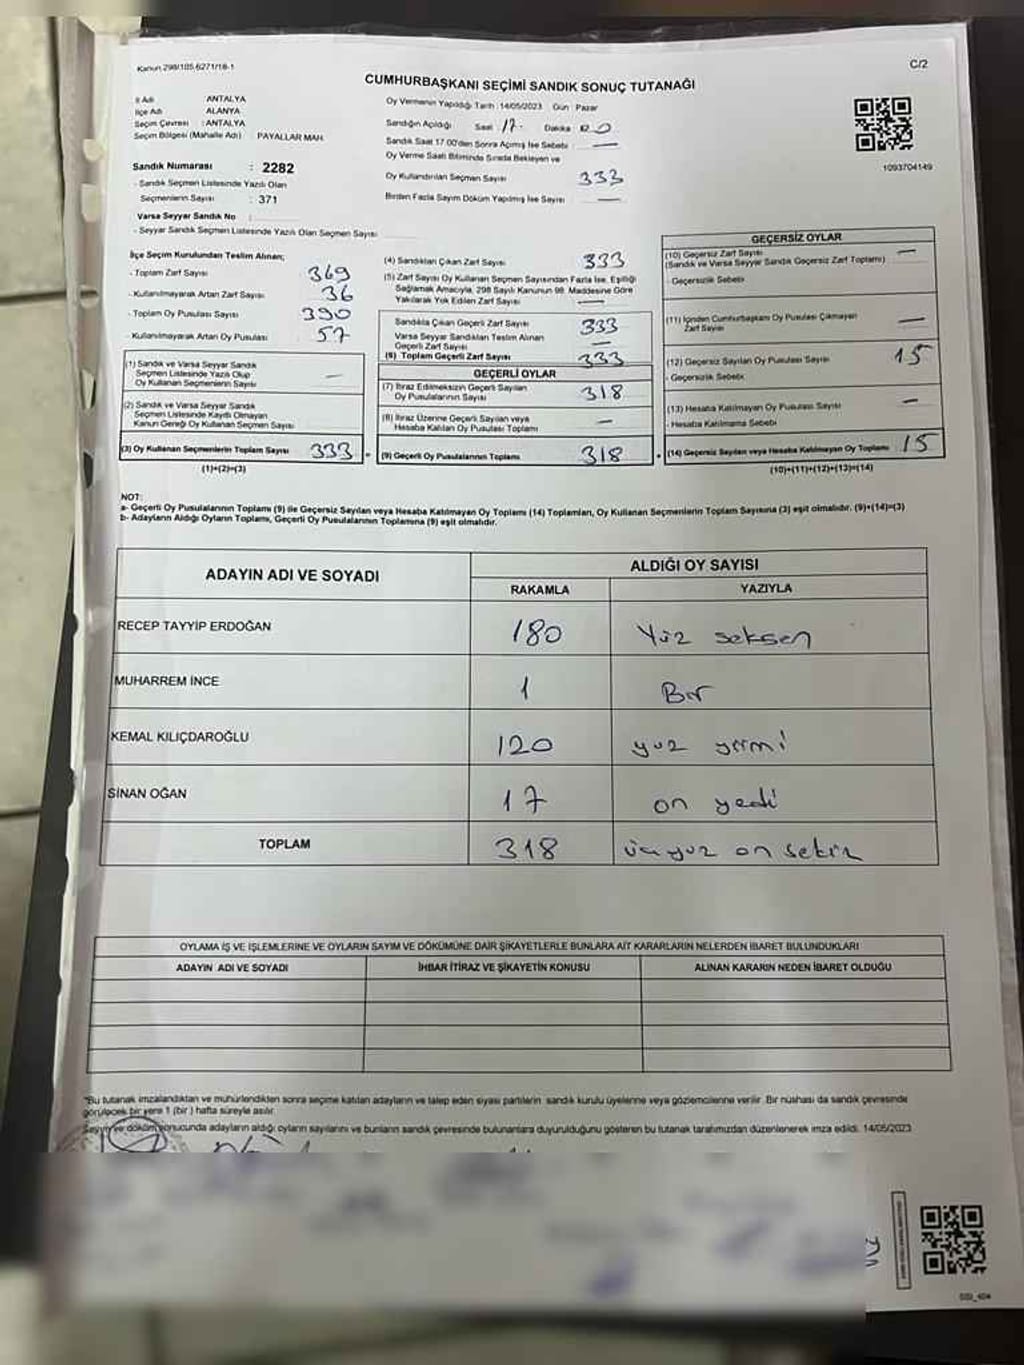 Kanun 298/105.6271/18-1
C/2
CUMHURBAŞKANI SEÇİMİ SANDIK SONUÇ TUTANAĞI
İl Adı ANTALYA
İlçe Adı ALANYA
Seçim Çevresi : ANTALYA
Seçim Bölgesi (Mahalle Adı) PAYALLAR MAH.
Oy Vermenin Yapıldığı Tarih : 14/05/2023 Gün : Pazar
Sandığın Açıldığı Saat 17. Dakika
Sandık Saat 17.00'den Sonra Açılmış İse Sebebi : —
Oy Verme Saati Bitiminde Sırada Bekleyen ve
Oy Kullandırılan Seçmen Sayısı 333
Birden Fazla Sayım Döküm Yapılmış İse Sayısı —
1093704149
Sandık Numarası : 2282
- Sandık Seçmen Listesinde Yazılı Olan
Seçmenlerin Sayısı : 371
Varsa Seyyar Sandık No :
- Seyyar Sandık Seçmen Listesinde Yazılı Olan Seçmen Sayısı
İlçe Seçim Kurulundan Teslim Alınan;
- Toplam Zarf Sayısı 369
- Kullanılmayarak Artan Zarf Sayısı 36
- Toplam Oy Pusulası Sayısı 390
- Kullanılmayarak Artan Oy Pusulası 57
(1) Sandık ve Varsa Seyyar Sandık
Seçmen Listesinde Yazılı Olup
Oy Kullanan Seçmenlerin Sayısı —
(2) Sandık ve Varsa Seyyar Sandık
Seçmen Listesinde Kayıtlı Olmayan
Kanun Gereği Oy Kullanan Seçmen Sayısı
(3) Oy Kullanan Seçmenlerin Toplam Sayısı 333
(1)+(2)=(3)
(4) Sandıktan Çıkan Zarf Sayısı 333
(5) Zarf Sayısı Oy Kullanan Seçmen Sayısından Fazla İse, Eşitliği
Sağlamak Amacıyla, 298 Sayılı Kanunun 98. Maddesine Göre
Yakılarak Yok Edilen Zarf Sayısı —
Sandıkta Çıkan Geçerli Zarf Sayısı 333
Varsa Seyyar Sandıkları Teslim Alınan
Geçerli Zarf Sayısı —
(6) Toplam Geçerli Zarf Sayısı 333
GEÇERLİ OYLAR
(7) İtiraz Edilmeksizin Geçerli Sayılan
Oy Pusulalarının Sayısı 318
(8) İtiraz Üzerine Geçerli Sayılan veya
Hesaba Katılan Oy Pusulası Toplamı —
(9) Geçerli Oy Pusulalarının Toplamı 318
GEÇERSİZ OYLAR
(10) Geçersiz Zarf Sayısı —
(Sandık ve Varsa Seyyar Sandık Geçersiz Zarf Toplamı)
- Geçersizlik Sebebi
(11) İçinden Cumhurbaşkanı Oy Pusulası Çıkmayan
Zarf Sayısı —
(12) Geçersiz Sayılan Oy Pusulası Sayısı 15
- Geçersizlik Sebebi:
(13) Hesaba Katılmayan Oy Pusulası Sayısı —
- Hesaba Katılmama Sebebi
(14) Geçersiz Sayılan veya Hesaba Katılmayan Oy Toplamı 15
(10)+(11)+(12)+(13)=(14)
NOT:
a- Geçerli Oy Pusulalarının Toplamı (9) ile Geçersiz Sayılan veya Hesaba Katılmayan Oy Toplamı (14) Toplamları, Oy Kullanan Seçmenlerin Toplam Sayısına (3) eşit olmalıdır. (9)+(14)=(3)
b- Adayların Aldığı Oyların Toplamı, Geçerli Oy Pusulalarının Toplamına (9) eşit olmalıdır.
ADAYIN ADI VE SOYADI ALDIĞI OY SAYISI
RAKAMLA YAZIYLA
RECEP TAYYİP ERDOĞAN 180 Yüz seksen
MUHARREM İNCE 1 Bir
KEMAL KILIÇDAROĞLU 120 yüz yirmi
SİNAN OĞAN 17 on yedi
TOPLAM 318 üçyüz on sekiz
OYLAMA İŞ VE İŞLEMLERİNE VE OYLARIN SAYIM VE DÖKÜMÜNE DAİR ŞİKAYETLERLE BUNLARA AİT KARARLARIN NELERDEN İBARET BULUNDUKLARI
ADAYIN ADI VE SOYADI İHBAR İTİRAZ VE ŞİKAYETİN KONUSU ALINAN KARARIN NEDEN İBARET OLDUĞU
"Bu tutanak imzalandıktan ve mühürlendikten sonra seçime katılan adayların ve talep eden siyasi partilerin sandık kurulu üyelerine veya gözlemcilerine verilir. Bir nüshası da sandık çevresinde
görülecek bir yere 1 (bir) hafta süreyle asılır.
Sayım ve döküm sonucunda adayların aldığı oyların sayılarını ve bunların sandık çevresinde bulunanlara duyurulduğunu gösteren bu tutanak tarafımızdan düzenlenerek imza edildi. 14/05/2023